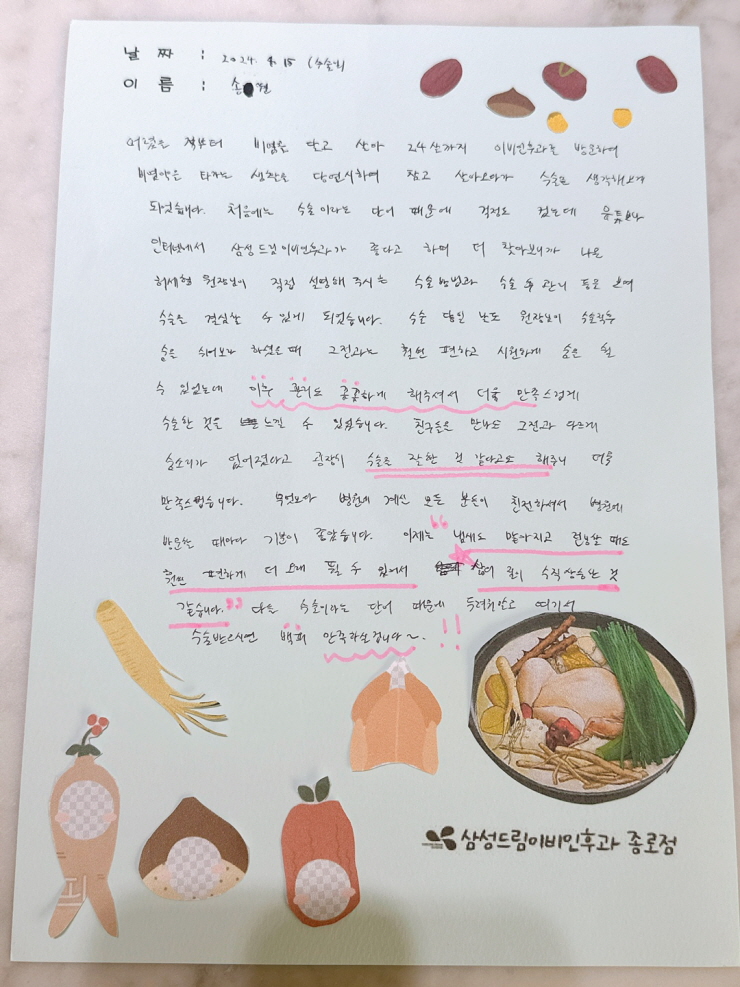 날 짜 : 2024. 8. 15 (수술비
이 름 : 손 현
어렸을 적부터 비염을 달고 살아 24살까지 이비인후과를 방문하여
비염약은 타가는 생활을 당연시하며 참고 살아오다가 수술을 생각해보게
되었습니다. 처음에는 수술이라는 단어 때문에 걱정도 컸는데 유튜브나
인터넷에서 삼성드림이비인후과가 좋다고 하며 더 찾아보니까 나온
허세형 원장님이 직접 설명해 주시는 수술 방법과 수술 후 관리 등을 보며
수술을 결심할 수 있게 되었습니다. 수술 당일 날도 원장님이 수술직후
숨을 쉬어보라 하셨을 때 그전과는 훨씬 편하고 시원하게 숨을 쉴
수 있었는데 이후 관리도 꼼꼼하게 해주셔서 더욱 만족스럽게
수술한 것을 느낄 수 있었습니다. 친구들을 만나도 그전과 다르게
숨소리가 없어졌다고 굉장히 수술을 잘한 것 같다고도 해주니 더욱
만족스럽습니다. 무엇보다 병원에 계신 모든 분들이 친절하셔서 병원에
방문할 때마다 기분이 좋았습니다. 이제는 "냄새도 맡아지고 런닝할 때도
훨씬 편하게 더 오래 뛸 수 있어서 삶의 질이 수직상승한 것
같습니다." 다들 수술이라는 단어 때문에 두려워말고 여기서
수술받으시면 백퍼 만족하실겁니다~. !!
삼성드림이비인후과 종로점